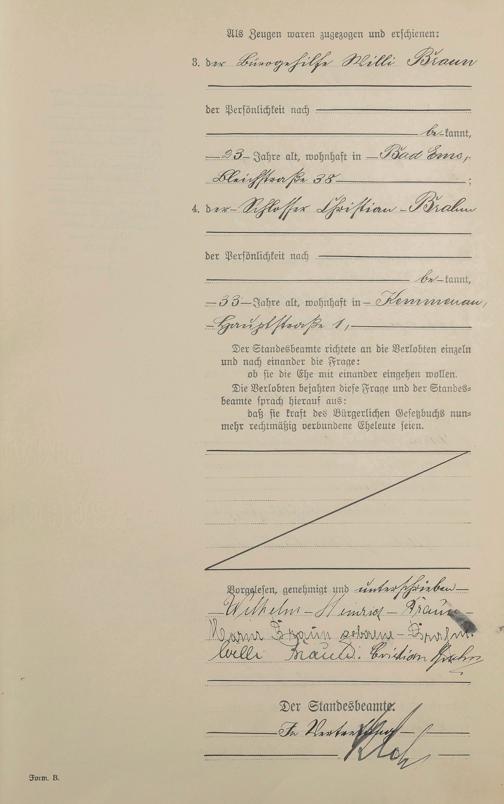 Als Zeugen waren zugezogen und erschienen:
3. der Bürogehilfe Willi Braun
der Persönlichkeit nach
be-kannt,
23 Jahre alt, wohnhaft in Bad Ems,
Bleichstraße 38 ;
4. der Schlosser Christian Brahm
der Persönlichkeit nach
be-kannt,
33 Jahre alt, wohnhaft in Kemmenau,
Hauptstraße 1,
Der Standesbeamte richtete an die Verlobten einzeln
und nach einander die Frage:
ob sie die Ehe mit einander eingehen wollen.
Die Verlobten bejahten diese Frage und der Standes-
beamte sprach hierauf aus:
daß sie kraft des Bürgerlichen Gesetzbuchs nun-
mehr rechtmäßig verbundene Eheleute seien.
Vorgelesen, genehmigt und unterschrieben
Wilhelm Heinrich Braun
Braun geborene Brahm.
Willi Braun.
Der Standesbeamte.
In Vertretung
Form. B.